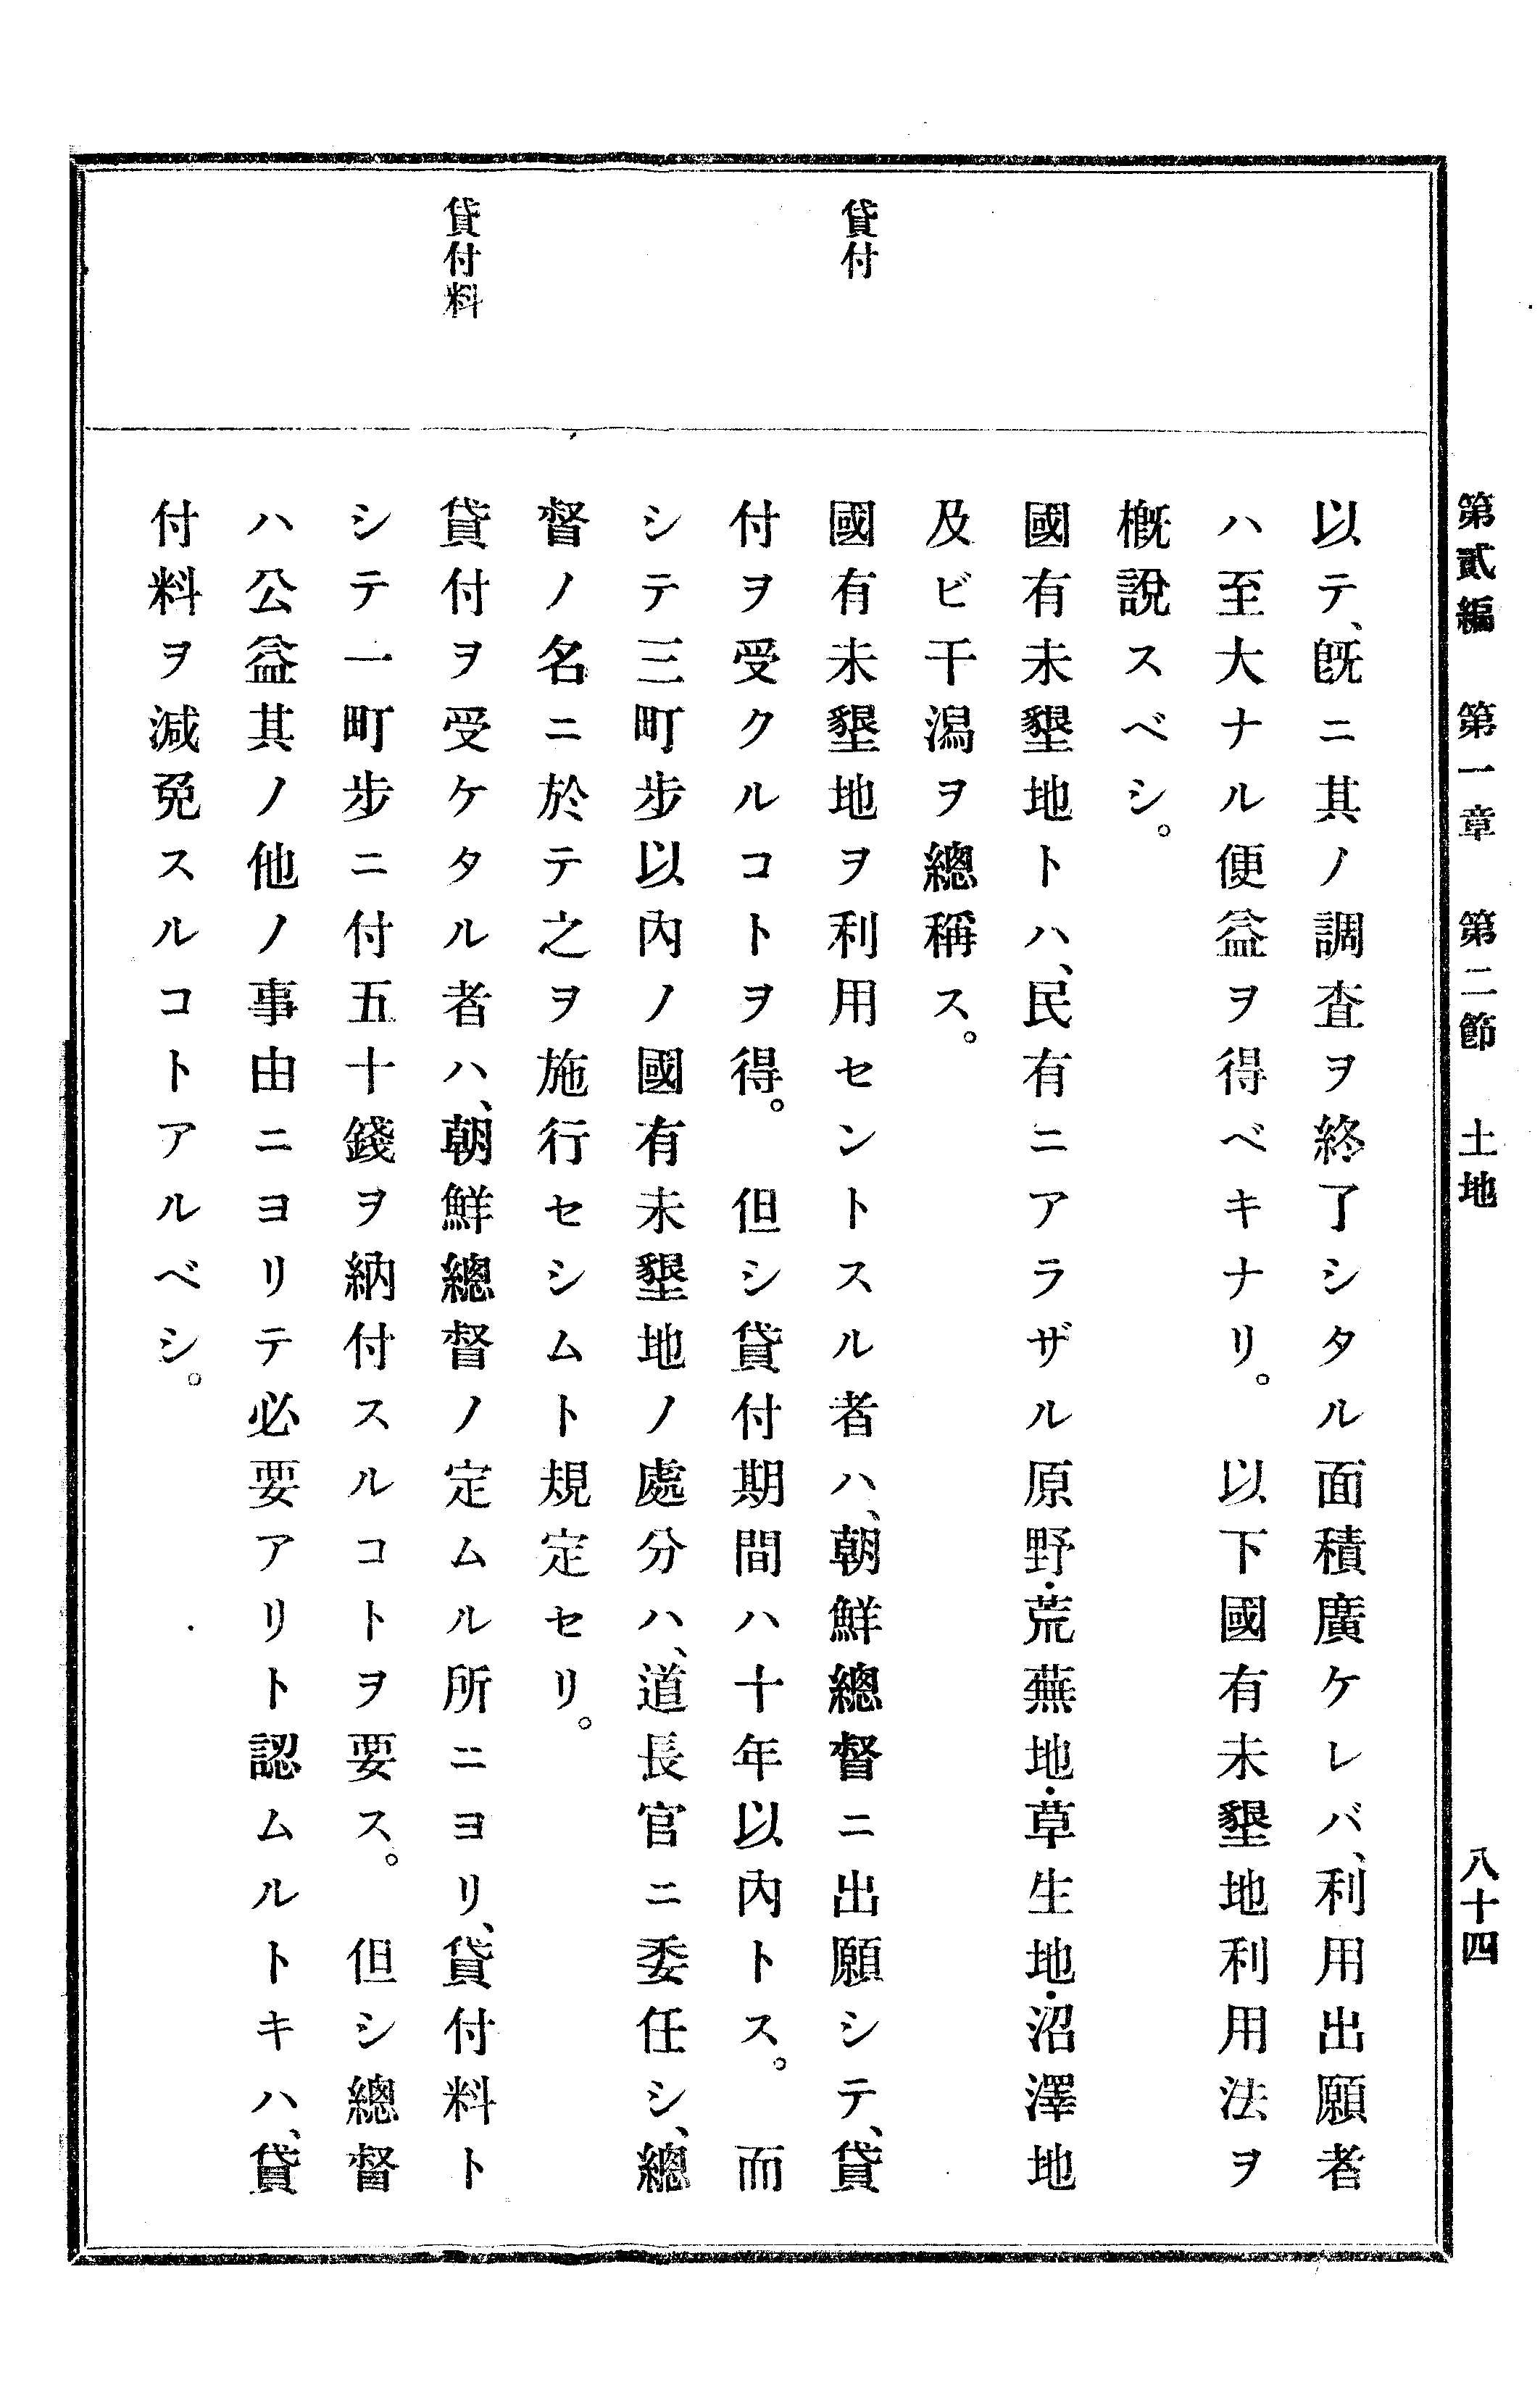 第貳編　第一章　第二節　土地　八十四
以テ、旣ニ其ノ調査ヲ終了シタル面積廣ケレバ、利用出願者
ハ至大ナル便益ヲ得ベキナリ。　以下國有未墾地利用法ヲ
槪說スベシ。
國有未墾地トハ、民有ニアラザル原野・荒蕪地・草生地・沼澤地
及ビ干潟ヲ總稱ス。
貸付
國有未墾地ヲ利用セントスル者ハ、朝鮮總督ニ出願シテ、貸
付ヲ受クルコトヲ得。　但シ貸付期間ハ十年以內トス。　而
シテ三町步以內ノ國有未墾地ノ處分ハ、道長官ニ委任シ、總
督ノ名ニ於テ之ヲ施行セシムト規定セリ。
貸付料
貸付ヲ受ケタル者ハ、朝鮮總督ノ定ムル所ニヨリ、貸付料ト
シテ一町步ニ付五十錢ヲ納付スルコトヲ要ス。　但シ總督
ハ公益其ノ他ノ事由ニヨリテ必要アリト認ムルトキハ、貸
付料ヲ減免スルコトアルベシ。